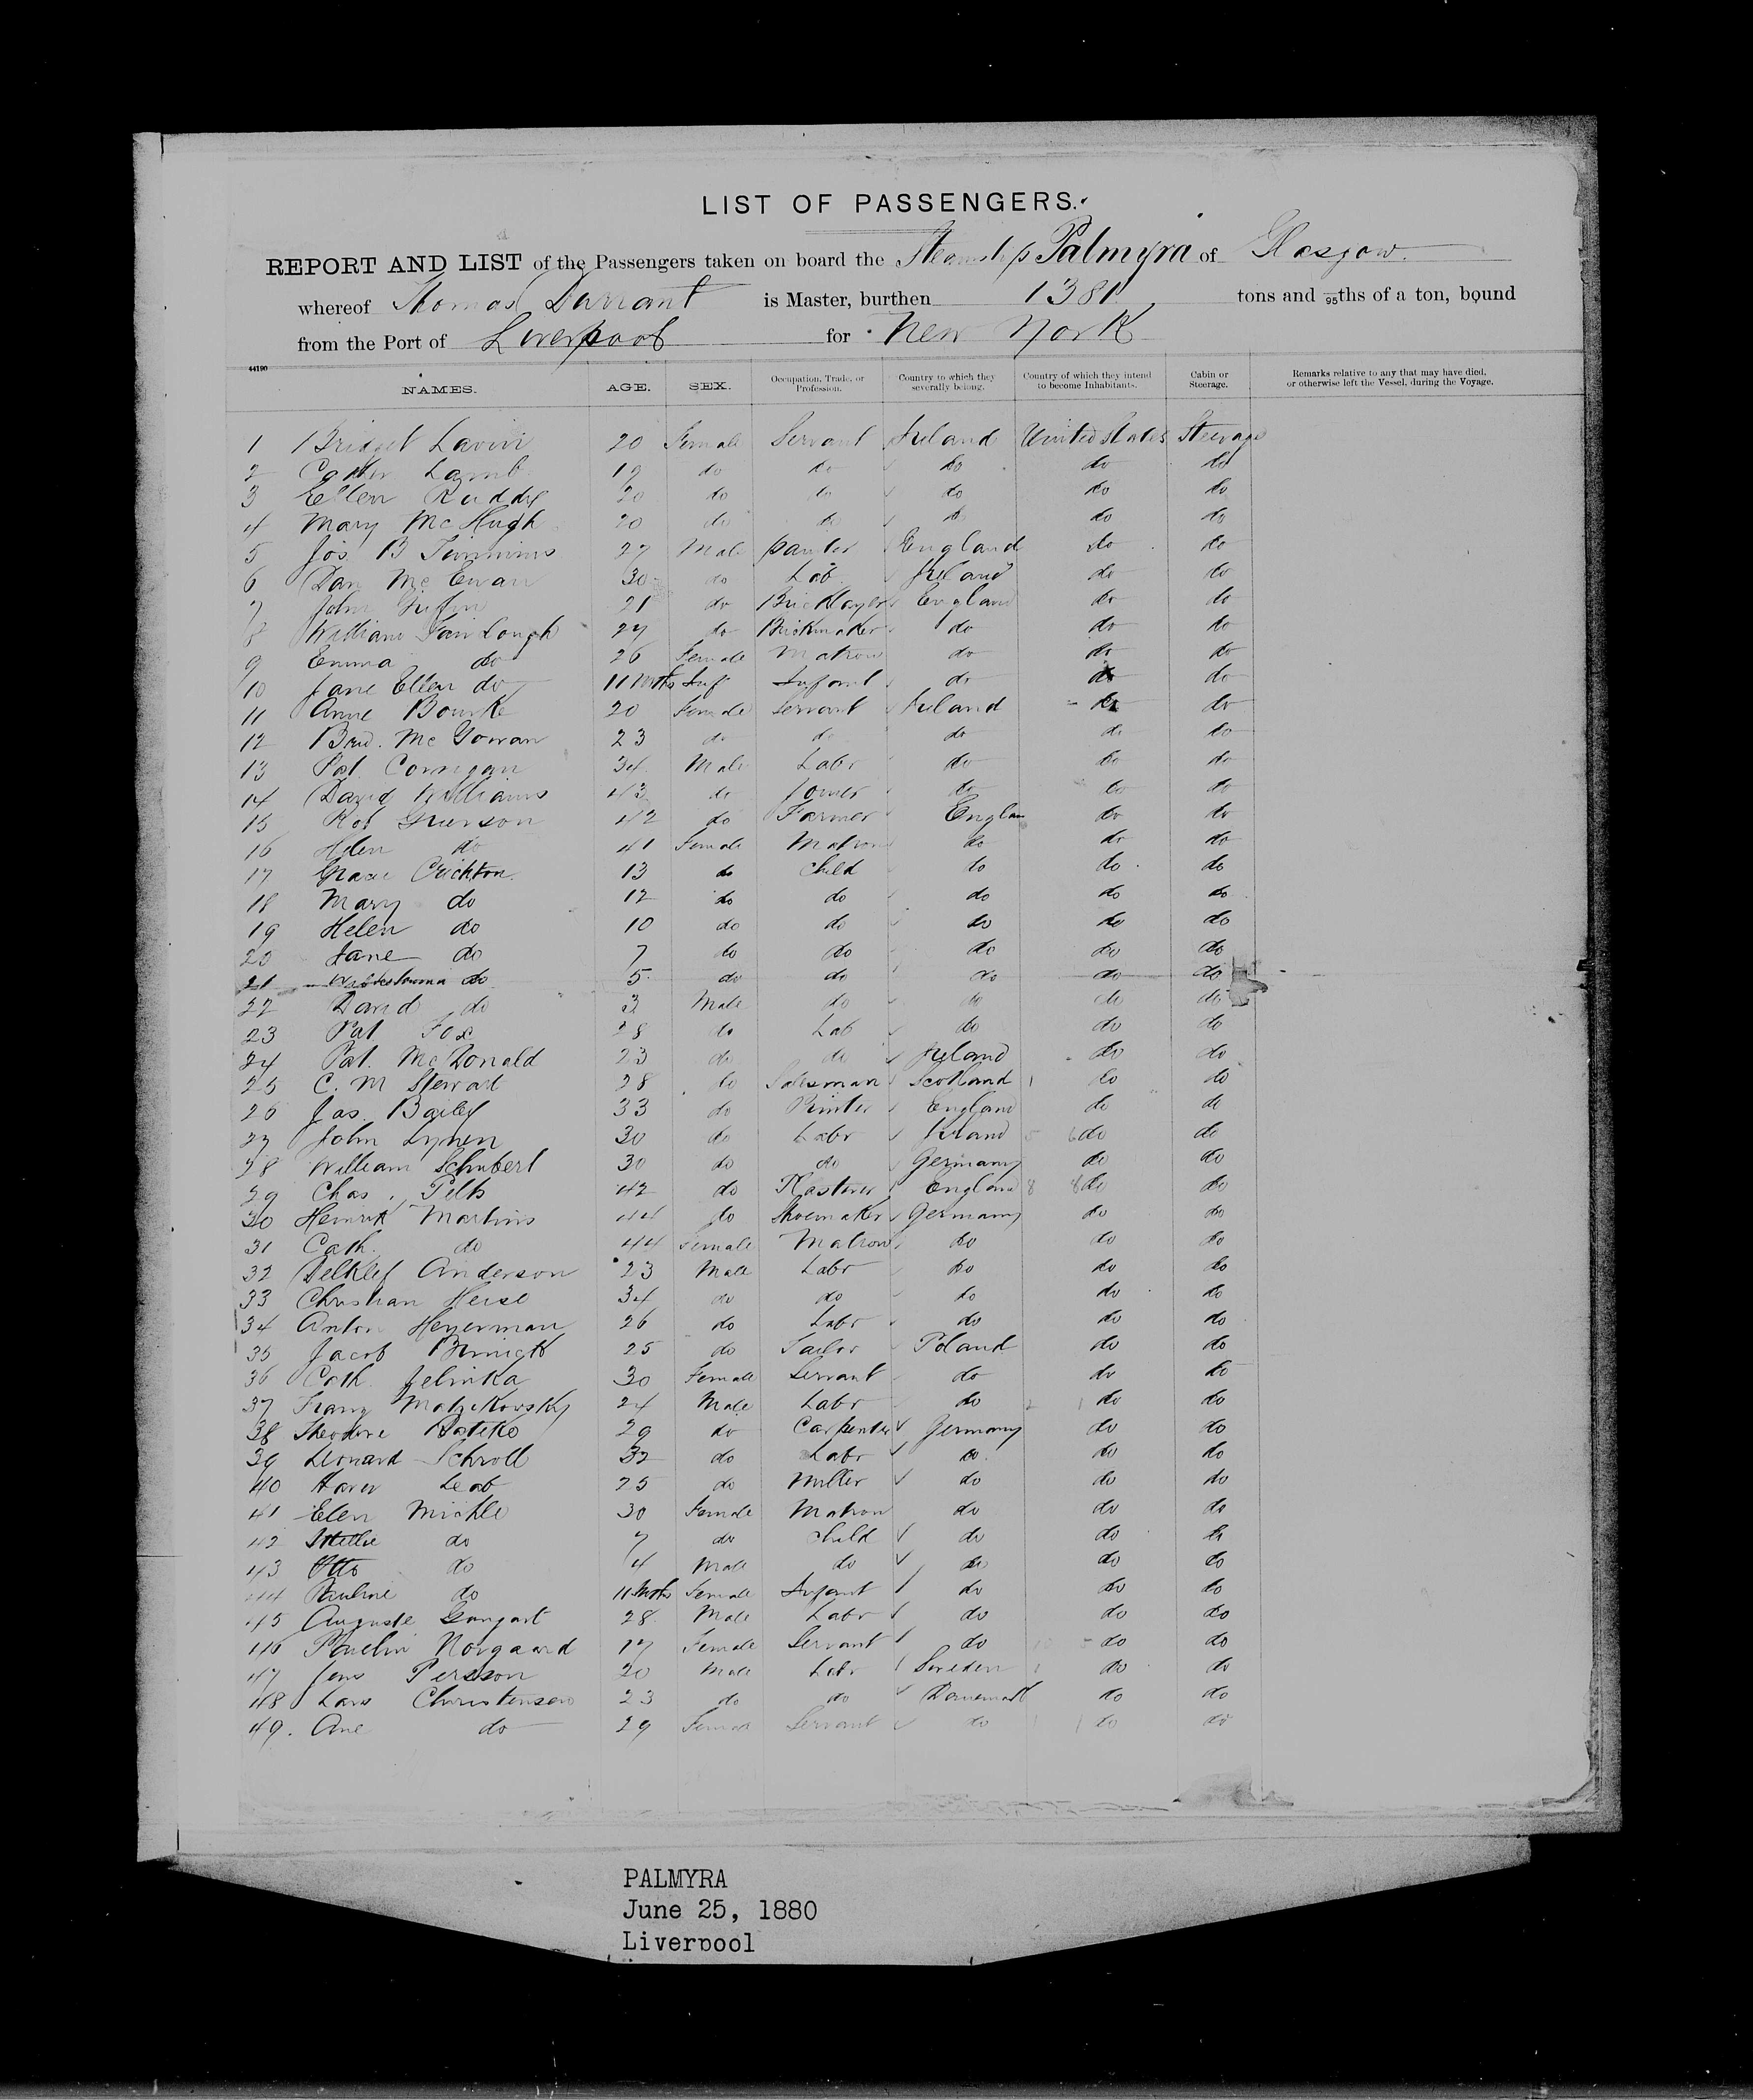 LIST OF PASSENGERS.
REPORT AND LIST of the Passengers taken on board the Steamship Palmyra of Glasgow.
whereof Thomas Durrant is Master, burthen 1381 tons and /95ths of a ton, bound
from the Port of Liverpool for New York
44190
NAMES. AGE. SEX. Occupation, Trade, or Profession. Country to which they severally belong. Country of which they intend to become Inhabitants. Cabin or Steerage. Remarks relative to any that may have died, or otherwise left the Vessel, during the Voyage.
1 Bridget Lavin 20 Female Servant Ireland United States Steerage
2 Lamb 19 do do do do do
3 Ellen Ruddy 20 do do do do do
4 Mary McHugh 20 do do do do do
5 Jos B Timmins 27 Male England do do
6 Dan McEwan 30 do Lab Ireland do do
7 John Griffin 21 do Bricklayer England do do
8 William Fairlough 27 do Brickmaker do do do
9 Emma do 26 Female Matron do do do
10 Jane Ellen do 11 Mths Inf Infant do do do
11 Anne Bourke 20 Female Servant Ireland do do
12 Brid. McGowan 23 do do do do do
13 Pat. Corrigan 34 Male Labr do do do
14 David Williams 43 do Joiner do do do
15 Rob Grierson 42 do Farmer Englan do do
16 Helen do 41 Female Matron do do do
17 Grace Crichton. 13 do Child do do do
18 Mary do 12 do do do do do
19 Helen do 10 do do do do do
20 Jane do 7 do do do do do
21 do 5 do do do do do
22 David do 3 Male do do do do
23 Pat Fox 28 do Lab do do do
24 Pat. McDonald 23 do do Ireland do do
25 C. M Stewart 28 do Salesman Scotland 1 do do
26 Jas. Bailey 33 do Printer England do do
27 John Lynen 30 do Labr Irland 5 6 do do
28 William Schubert 30 do do Germany do do
29 Chas. Pelts 42 do Plasterer England 8 8 do do
30 Heinrik Martins 44 do Shoemaker Germany do do
31 Cath. do 44 Female Matron do do do
32 Detklef Anderson 23 Male Labr do do do
33 Christian Heise 34 do do do do do
34 Anton Heyerman 26 do Labr do do do
35 Jacob 25 do Tailor Poland do do
36 Cath. Jelinka 30 Female Servant do do do
37 Franz Matzikowsky 24 Male Labr do 2 1 do do
38 Theodore 29 do Carpenter Germany do do
39 Leonard Schroll 32 do Labr do do do
40 Leab 25 do Miller do do do
41 Elen Michle 30 Female Matron do do do
42 do 7 do Child do do do
43 Otto do 4 Male do do do do
44 Pauline do 11 Mths Female Infant do do do
45 Auguste Gangart 28 Male Labr do do do
46 Norgaard 17 Female Servant do 10 do do
47 Jens Persson 20 Male Labr Sweden 1 do do
48 Lars Christensen 23 do do Danemark do do
49. Ane do 29 Female Servant do 1 1 do do
PALMYRA
June 25, 1880
Liverpool